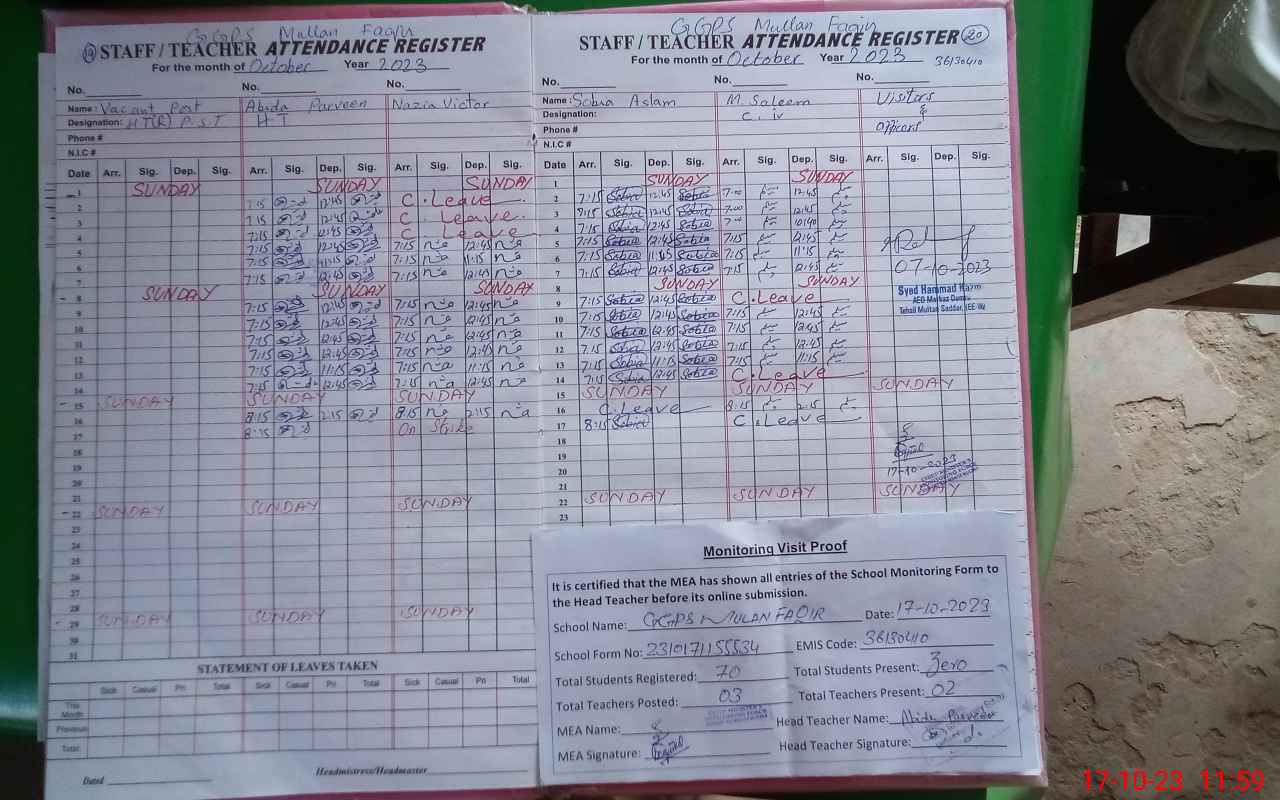 GGPS Mullan Faqir
19 STAFF / TEACHER ATTENDANCE REGISTER
For the month of October Year 2023
No. No. No.
Name: Vacant Post Abida Parveen Nazia Victor
Designation: HT(R) P.S.T HT
Phone #
N.I.C #
Date Arr. Sig. Dep. Sig. Arr. Sig. Dep. Sig. Arr. Sig. Dep. Sig.
1 SUNDAY SUNDAY SUNDAY
2 7:15 12:45 C. Leave
3 7:15 12:45 C. Leave
4 7:15 12:45 C. Leave
5 7:15 12:45 7:15 12:45
6 7:15 11:15 7:15 11:15
7 7:15 12:45 7:15 12:45
8 SUNDAY SUNDAY SUNDAY
9 7:15 12:45 7:15 12:45
10 7:15 12:45 7:15 12:45
11 7:15 12:45 7:15 12:45
12 7:15 12:45 7:15 12:45
13 7:15 11:15 7:15 11:15
14 7:15 12:45 7:15 12:45
15 SUNDAY SUNDAY SUNDAY
16 8:15 2:15 8:15 2:15
17 8:15 On Strike
18
19
20
21
22 SUNDAY SUNDAY SUNDAY
23
24
25
26
27
28
29 SUNDAY SUNDAY SUNDAY
30
31
STATEMENT OF LEAVES TAKEN
Sick Casual Pri Total Sick Casual Pri Total Sick Casual Pri Total
This Month
Previous
Total:
Dated Headmistress/Headmaster
GGPS Mullan Faqir
STAFF / TEACHER ATTENDANCE REGISTER 20
For the month of October Year 2023 36130410
No. No. No.
Name: Sobia Aslam M. Saleem Visitors
Designation: C. IV &
Phone # Officers
N.I.C #
Date Arr. Sig. Dep. Sig. Arr. Sig. Dep. Sig. Arr. Sig. Dep. Sig.
1 SUNDAY SUNDAY
2 7:15 Sobia 12:45 Sobia 7:00 12:45
3 7:15 Sobia 12:45 Sobia 7:00 12:45
4 7:15 Sobia 12:45 Sobia 7:00
5 7:15 Sobia 12:45 Sobia 7:15 12:45
6 7:15 Sobia 11:15 Sobia 7:15 11:15
7 7:15 Sobia 12:45 Sobia 7:15 12:45 07-10-2023
8 SUNDAY SUNDAY
Syed Hammad
9 7:15 Sobia 12:45 Sobia C. Leave
AEO-Markaz
Tehsil Multan Sadder,
10 7:15 Sobia 12:45 Sobia 7:15 12:45
11 7:15 Sobia 12:45 Sobia 7:15 12:45
12 7:15 Sobia 12:45 Sobia 7:15 12:45
13 7:15 Sobia 11:15 Sobia 7:15 11:15
14 7:15 Sobia 12:45 Sobia C. Leave
15 SUNDAY SUNDAY SUNDAY
16 C. Leave 8:15 2:15
17 8:15 Sobia C. Leave
18
19
20 17-10-2023
21
22 SUNDAY SUNDAY SUNDAY
23
Monitoring Visit Proof
It is certified that the MEA has shown all entries of the School Monitoring Form to
the Head Teacher before its online submission.
School Name: GGPS MULAN FAQIR Date: 17-10-2023
School Form No: 2310171155534 EMIS Code: 36130410
Total Students Registered: 70 Total Students Present: Zero
Total Teachers Posted: 03 Total Teachers Present: 02
MEA Name: Head Teacher Name: Abida Parveen
MEA Signature: Head Teacher Signature:
17-10-23 11:59